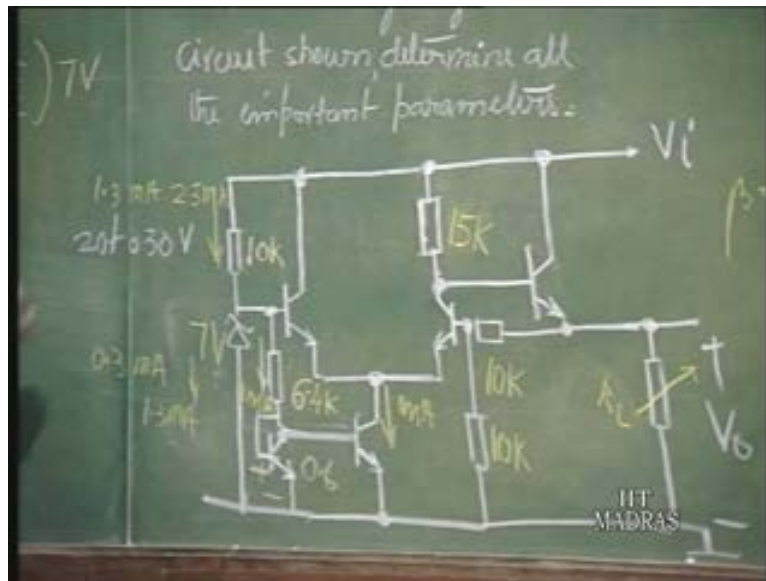 ) 7V
circuit shown, determine all
the important parameters.
Vi
1.3 mA 23mA
20to30V
10k
15K
β
7V
0.3 mA
1.3mA
6.4k
1mA
mA
10k
10k
RL
V0
0.6
+
-
IIT
MADRAS